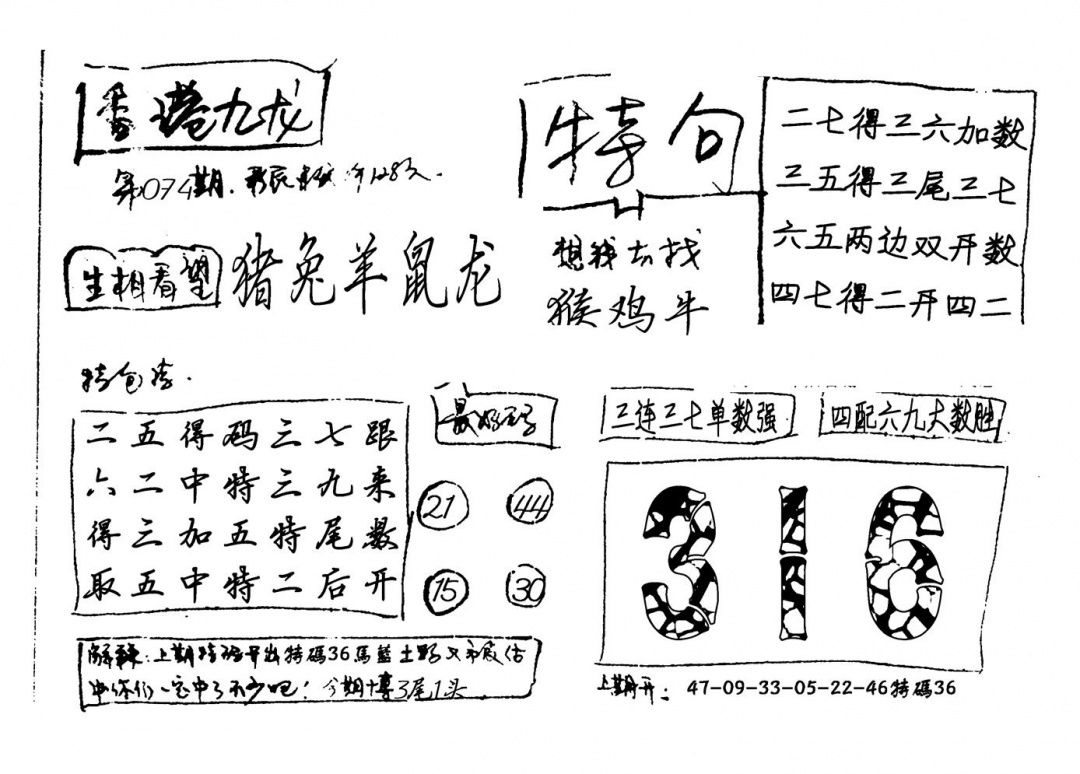 香港九龙
第074期.
生相看望
猪兔羊鼠龙
特句
想我去找
猴鸡牛
二七得三六加数
三五得三尾三七
六五两边双开数
四七得二开四二
二五得码三七跟
六二中特三九来
得三加五特尾数
取五中特二后开
21
44
15
30
三连三七单数强
四配六九大数胜
316
上期特码开出特碼36馬藍土野
中你们一定中了不少吧!今期博3尾1头
上期开: 47-09-33-05-22-46特碼36